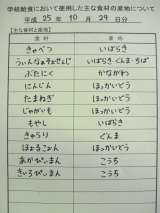 学校給食において使用した主な食材の産地について
平成 25年 10月 29日分
【主な食材と産地】
食材 産地
きゃべつ いばらき
ういんなーそーせーじ いばらき・ぐんま・ちば
ぶたにく かながわ
にんじん ほっかいどう
たまねぎ ほっかいどう
じゃがいも ほっかいどう
もやし いばらき
きゅうり ぐんま
ほーるこーん ほっかいどう
あかぴーまん こうち
きいろぴーまん こうち